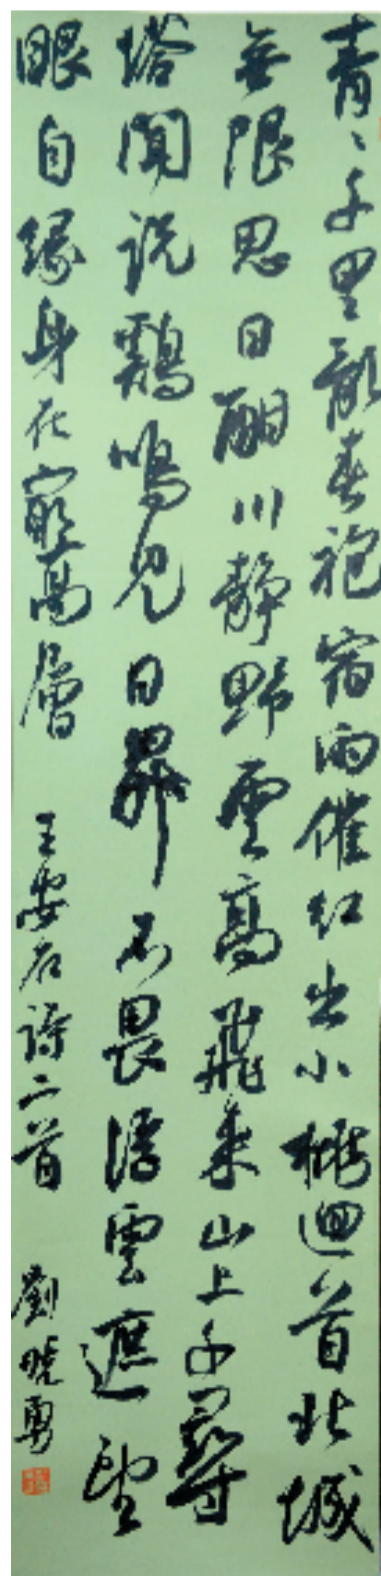 青々千里亂春袍宿雨催紅出小桃迴首北城
無限思日酣川靜野雲高飛來山上千尋
塔聞說鷄鳴見日昇不畏浮雲遮望
眼自緣身在最高層 王安石詩二首 劉曉勇